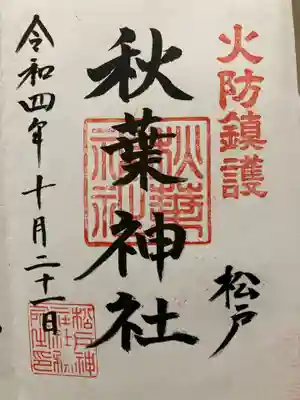 火防鎮護
松戸
秋葉神社
秋葉神社
令和四年十月二十一日
松戸神
社社務
所之印